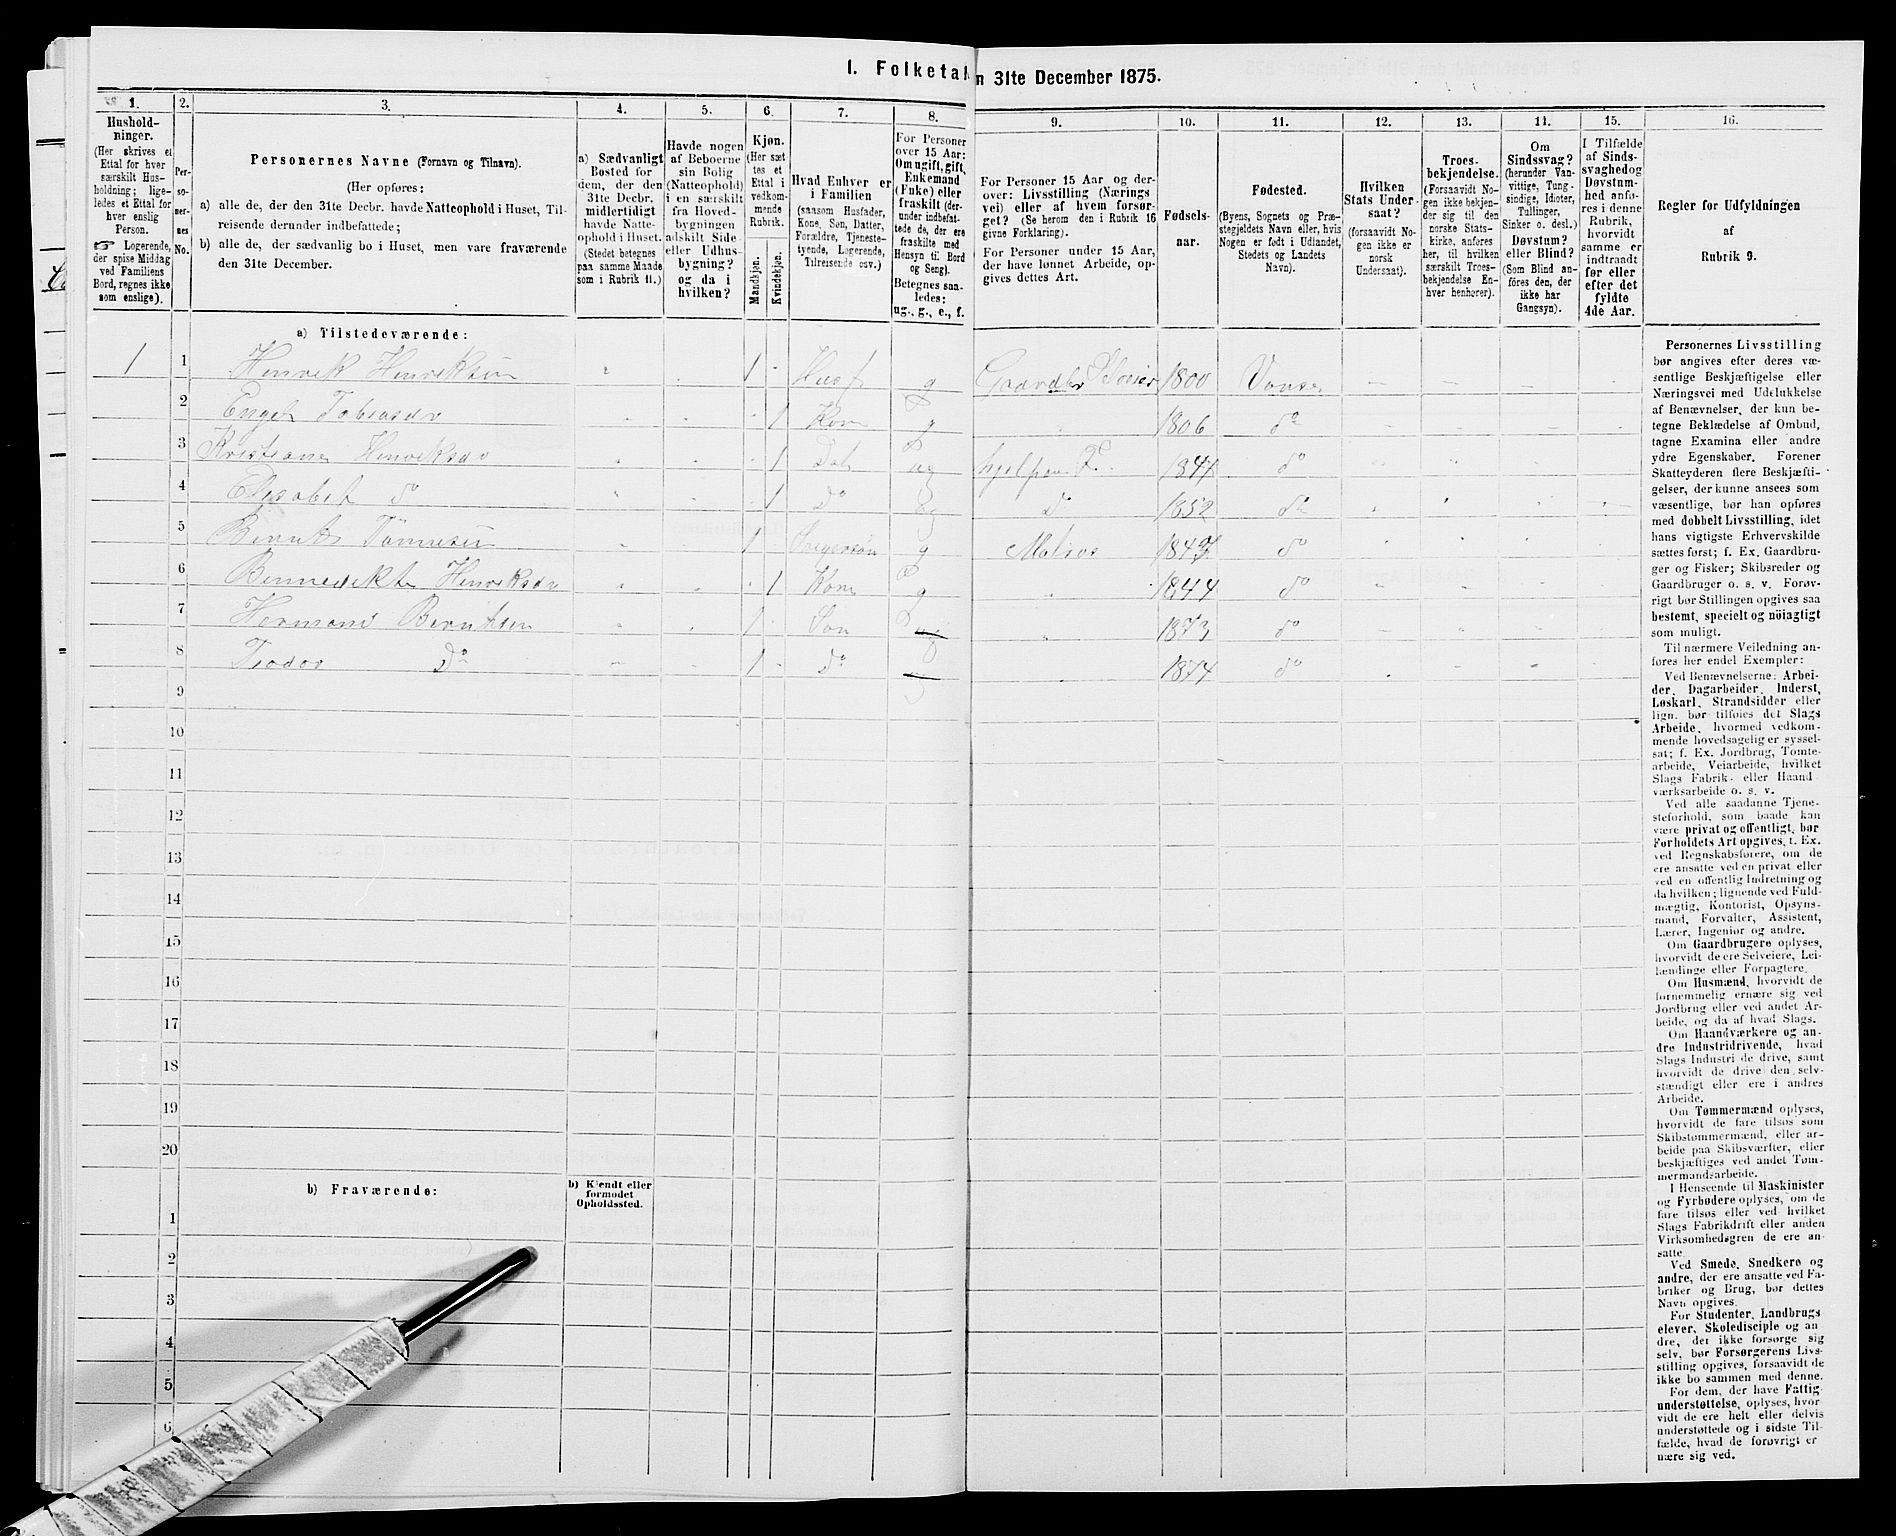 I. Folketal
n 31te December 1875.
1.
Hushold-
ninger.
(Her skrives et
Ettal for hver
særskilt Hus-
holdning; lige-
ledes et Ettal for
hver enslig
Person.
☞ Logerende,
der spise Middag
ved Familiens
Bord, regnes ikke
som enslige).
2.
Per-
so-
ner-
nes
No.
3.
Personernes Navne (Fornavn og Tilnavn).
(Her opføres:
a) alle de, der den 31te Decbr. havde Natteophold i Huset, Til-
reisende derunder indbefattede;
b) alle de, der sædvanlig bo i Huset, men vare fraværende
den 31te December.
4.
a) Sædvanligt
Bosted for
dem, der den
31te Decbr.
midlertidigt
havde Natte-
ophold i Huset.
(Stedet betegnes
paa samme Maade
som i Rubrik 11.)
5.
Havde nogen
af Beboerne
sin Bolig
(Natteophold)
i en særskilt
fra Hoved-
bygningen
adskilt Side-
eller Udhus-
bygning?
og da i
hvilken?
6.
Kjøn.
(Her sæt
tes et
Ettal i
vedkom-
mende
Rubrik.
Mandkjøn.
Kvindekjøn.
7.
Hvad Enhver er
i Familien
(saasom Husfader,
Kone, Søn, Datter,
Forældre, Tjeneste-
tyende, Logerende,
Tilreisende osv.)
8.
For Personer
over 15 Aar:
Om ugift, gift,
Enkemand
(Enke) eller
fraskilt (der-
under indbefat-
tede de, der ere
fraskilte med
Hensyn til Bord
og Seng).
Betegnes saa-
ledes:
ug., g., e., f.
9.
For Personer 15 Aar og der-
over: Livsstilling (Nærings
vei) eller af hvem forsør-
get? (Se herom den i Rubrik 16
givne Forklaring).
For Personer under 15 Aar,
der have lønnet Arbeide, op-
gives dettes Art.
10.
Fødsels-
aar.
11.
Fødested.
(Byens, Sognets og Præ-
stegjeldets Navn eller, hvis
Nogen er født i Udlandet,
Stedets og Landets
Navn).
12.
Hvilken
Stats Under-
saat?
(forsaavidt No-
gen ikke er
norsk
Undersaat).
13.
Troes-
bekjendelse.
(Forsaavidt No-
gen ikke bekjen-
der sig til den
norske Stats-
kirke, anføres
her, til hvilken
særskilt Troes-
bekjendelse En-
hver henhører).
14.
Om
Sindssvag?
(herunder Van-
vittige, Tung-
sindige, Idioter,
Tullinger,
Sinker o. desl.)
Døvstum?
eller Blind?
(Som Blind an-
føres den, der
ikke har
Gangsyn).
15.
I Tilfælde
af Sinds-
svaghed og
Døvstum-
hed anfø-
res i denne
Rubrik,
hvorvidt
samme er
indtraadt
før eller
efter det
fyldte
4de Aar.
16.
Regler for Udfyldningen
af
Rubrik 9.
a) Tilstedeværende:
1 1 Henrik Henriksen 1 Husf g Gaardbr Selveier 1800 Vanse
2 Engel Tobiasdr 1 Kone g 1806 do
3 Kristiane Henriksdr 1 Dat ug hjelper 1847 do
4 Elisabet do 1 Do ug D 1852 do
5 Berent Tønnesen 1 Svigersøn g Matros 1847 do
6 Bennedikte Henriksdr 1 Kone g 1844 do
7 Hermand Berntsen 1 Søn ug 1873 do
8 Teodor Do 1 Do 1874 do
9
10
11
12
13
14
15
16
17
18
19
20
b) Fraværende:
b) Kjendt eller
formodet
Opholdssted.
1
2
3
4
5
6
Personernes Livsstilling
bør angives efter deres væ-
sentlige Beskjæftigelse eller
Næringsvei med Udelukkelse
af Benævnelser, der kun be-
tegne Beklædelse af Ombud,
tagne Examina eller andre
ydre Egenskaber. Forener
Skatteyderen flere Beskjæfti-
gelser, der kunne ansees som
væsentlige, bør han opføres
med dobbelt Livsstilling, idet
hans vigtigste Erhvervskilde
sættes først; f. Ex. Gaardbru-
ger og Fisker; Skibsreder og
Gaardbruger o. s. v. Forøv-
rigt bør Stillingen opgives saa
bestemt, specielt og nöiagtigt
som muligt.
Til nærmere Veiledning an-
føres her endel Exempler:
Ved Benævnelserne: Arbei-
der, Dagarbeider, Inderst,
Løskarl, Strandsidder eller
lign. bør tilføies det Slags
Arbeide, hvormed vedkom-
mende hovedsagelig er syssel-
sat; f. Ex. Jordbrug, Tomte-
arbeide, Veiarbeide, hvilket
Slags Fabrik- eller Haand
værksarbeide o. s. v.
Ved alle saadanne Tjene-
steforhold, som baade kan
være privat og offentligt, bør
Forholdets Art opgives, t. Ex.
ved Regnskabsførere, om de
ere ansatte ved en privat eller
ved en offentlig Indretning og
da hvilken; lignende ved Fuld-
mægtig, Kontorist, Opsyns-
mand, Forvalter, Assistent,
Lærer, Ingeniør og andre.
Om Gaardbrugere oplyses,
hvorvidt de ere Selveiere, Lei-
lændinge eller Forpagtere.
Om Husmænd, hvorvidt de
fornemmelig ernære sig ved
Jordbrug eller ved andet Ar-
beide, og da af hvad Slags.
Om Haandværkere og an-
dre Industridrivende, hvad
Slags Industri de drive, samt
hvorvidt de drive den selv-
stændigt eller ere i andres
Arbeide.
Om Tømmermænd oplyses,
hvorvidt de fare tilsøs som
Skibstømmermænd, eller ar-
beide paa Skibsværfter, eller
beskjæftiges ved andet Tøm-
mermandsarbeide.
I Henseende til Maskinister
og Fyrbødere oplyses, om de
fare tilsøs eller ved hvilket
Slags Fabrikdrift eller anden
Virksomhedsgren de ere an-
satte.
Ved Smede, Snedkere og
andre, der ere ansatte ved Fa-
briker og Brug, bør dettes
Navn opgives.
For Studenter, Landbrugs
elever, Skoledisciple og an-
dre, der ikke forsørge sig
selv, bør Forsørgerens Livs-
stilling opgives, forsaavidt de
ikke bo sammen med denne.
For dem, der have Fattig-
understøttelse, oplyses, hvor-
vidt de ere helt eller delvis
understøttede og i sidste Til-
fælde, hvad de forøvrigt er
nære sig ved.